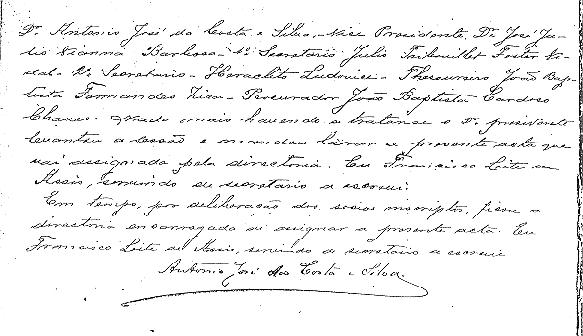 Dr. Antonio José da Costa e Silva, Vice Presidente, Dr. José Ju-
lio Vianna Barbosa - 1º Secretario Julio Foster Vi-
dal - 2º Secretario - Heraclito Ludovice - Thesoureiro João Bap-
tista Fernandes - Percurador João Baptista Cardozo
Chaves. Nada mais havendo a tratar-se o Dr. presidente
levantou a sessão e mandou lavrar a presente acta que
vai assignada pela directoria. Eu Francisco Leite de
Assis, servindo de secretario a escrevi.
Em tempo, por deliberação dos socios inscriptos, ficou a
directoria encarregada de assignar a presente acta. Eu
Francisco Leite de Assis, servindo de secretario a escrevi
Antonio José da Costa e Silva